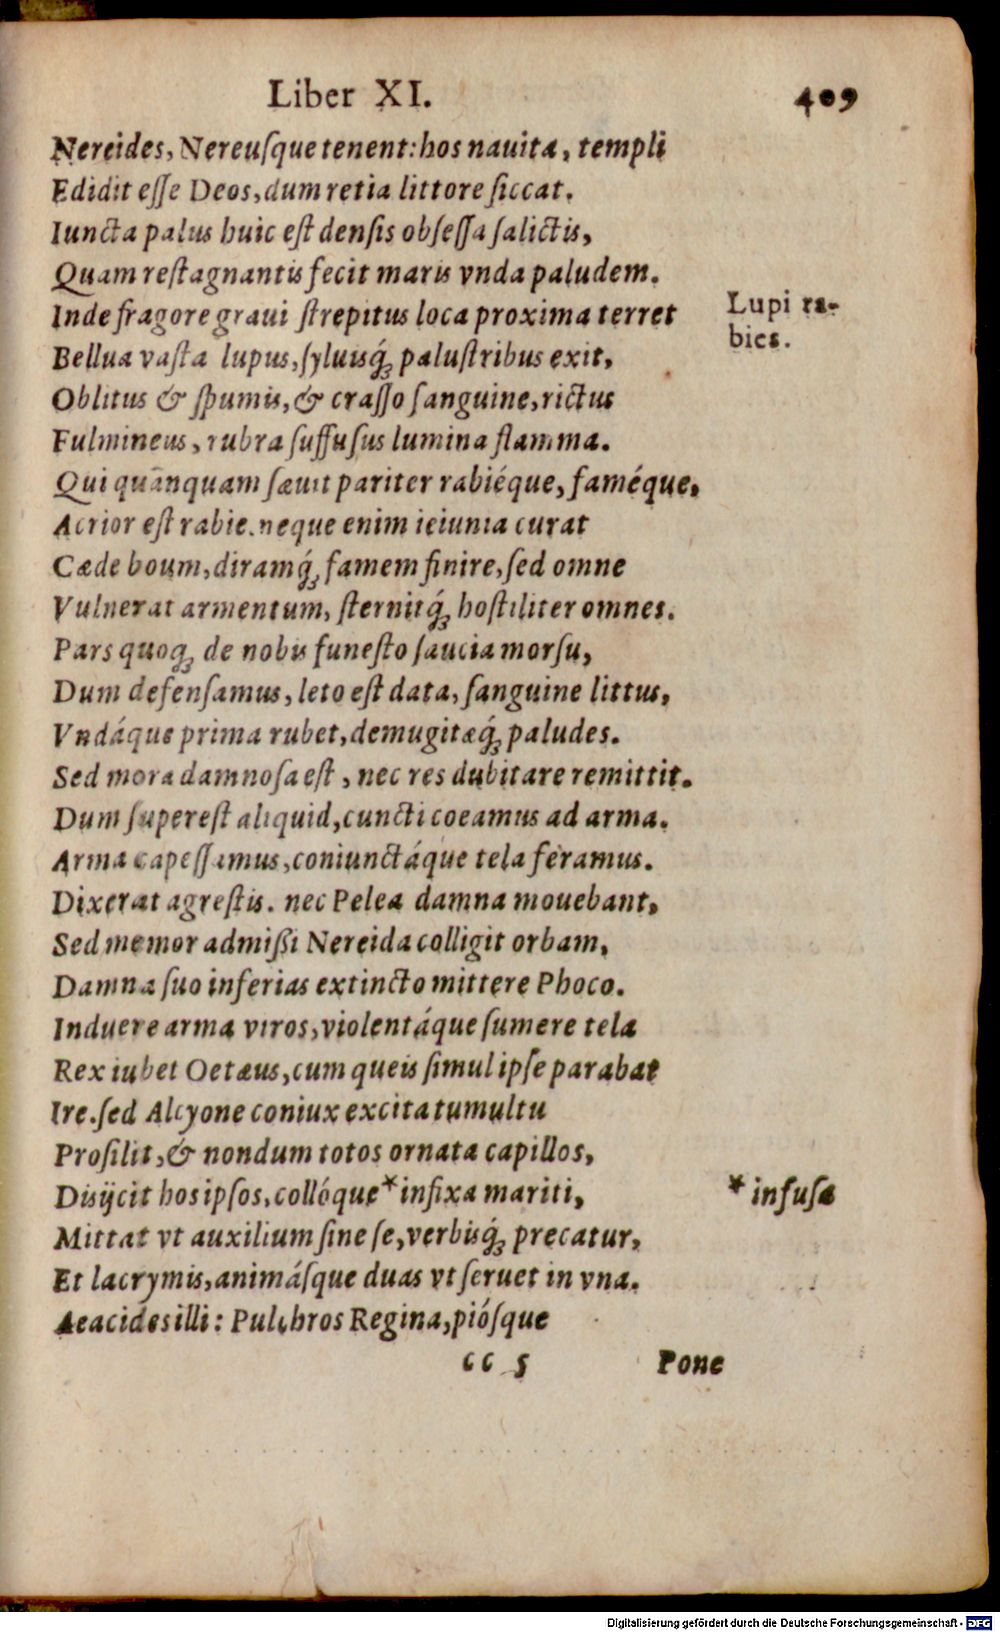 Liber XI. 409
Nereides, Nereuſque tenent: hos navitæ, templi
Edidit eſſe Deos, dum retia littore ſiccat.
Iuncta palus huic eſt denſis obſeſſa ſalictis,
Quam reſtagnantis fecit maris vnda paludem.
Inde fragore graui ſtrepitus loca proxima terret
Lupi ra-
bies.
Bellua vaſta lupus, ſyluisq́ꝫ paluſtribus exit,
Oblitus & ſpumis, & craſſo ſanguine, rictus
Fulmineus, rubra ſuffuſus lumina flamma.
Qui quãnquam ſæuit pariter rabiéque, faméque,
Acrior eſt rabie. neque enim ieiunia curat
Cæde boum, diramq́ꝫ famem finire, ſed omne
Vulnerat armentum, ſternitq́ꝫ hoſtiliter omnes.
Pars quoqꝫ de nobis funeſto ſaucia morſu,
Dum defenſamus, leto eſt data, ſanguine littus,
Vndáque prima rubet, demugitæq́ꝫ paludes.
Sed mora damnoſa eſt, nec res dubitare remittit.
Dum ſupereſt aliquid, cuncti coeamus ad arma.
Arma capeſſamus, coniunctáque tela feramus.
Dixerat agreſtis. nec Pelea damna mouebant,
Sed memor admißi Nereida colligit orbam,
Damna ſuo inferias extincto mittere Phoco.
Induere arma viros, violentáque ſumere tela
Rex iubet Oetæus, cum queis ſimul ipſe parabat
Ire. ſed Alcyone coniux excita tumultu
Proſilit, & nondum totos ornata capillos,
Disijcit hos ipſos, collóque * infixa mariti,
* infuſa
Mittat vt auxilium ſine ſe, verbisq́ꝫ precatur,
Et lacrymis, animáſque duas vt ſeruet in vna.
Aeacides illi: Pulchros Regina, pióſque
cc 5 Pone
Digitalisierung gefördert durch die Deutsche Forschungsgemeinschaft - DFG